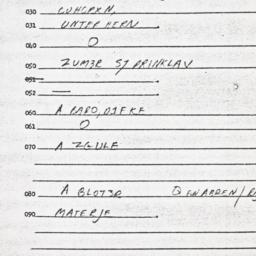 030 CUHCRXN.
031 UNTER HERN
040 O
050 ZUM3R SJ PRINKLAV
051
052 —
060 A RADO, OJEKE
061 O
070 A ZGULF
080 A GLOT3R O EWARDEN/
090 MATERJE